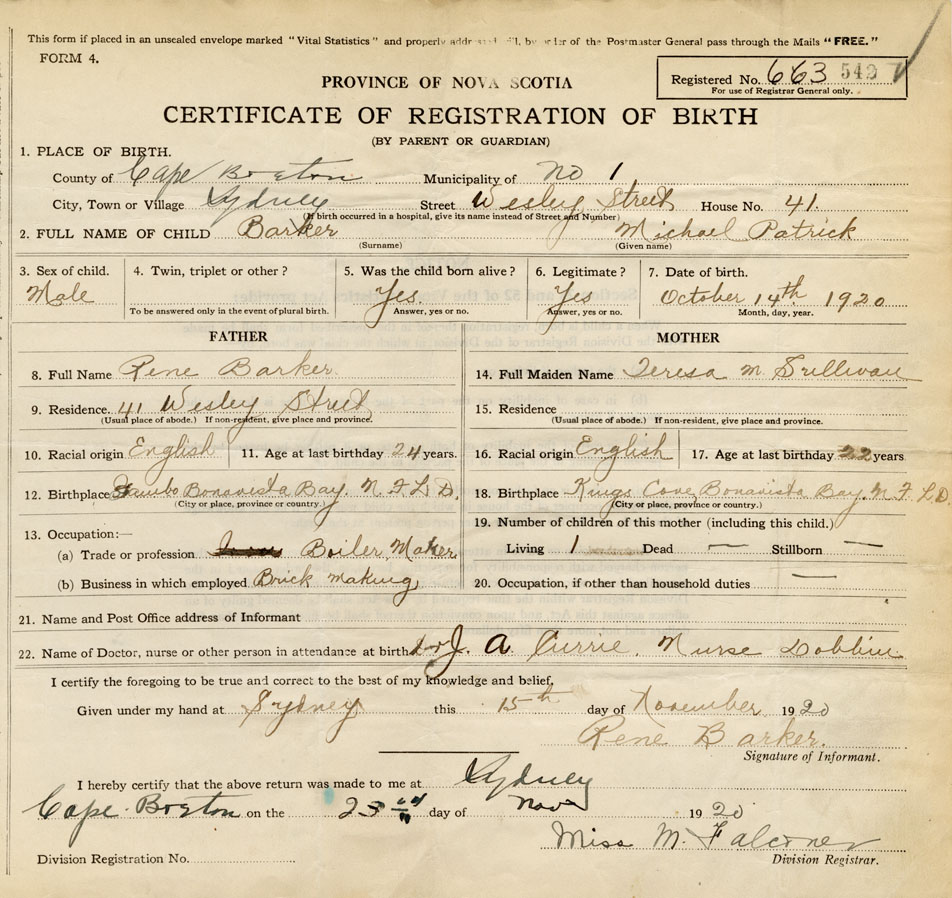 This form if placed in an unsealed envelope marked "Vital Statistics" and properly by of the Postmaster General pass through the Mails "FREE."
FORM 4.
Registered No. 663 542
For use of Registrar General only.
PROVINCE OF NOVA SCOTIA
CERTIFICATE OF REGISTRATION OF BIRTH
(BY PARENT OR GUARDIAN)
1. PLACE OF BIRTH.
County of Cape Breton Municipality of No 1
City, Town or Village Sydney Street Wesley Street House No. 41.
(If birth occurred in a hospital, give its name instead of Street and Number)
2. FULL NAME OF CHILD Barker Michael Patrick
(Surname) (Given name)
3. Sex of child. 4. Twin, triplet or other? 5. Was the child born alive? 6. Legitimate? 7. Date of birth.
Male Yes. Yes October 14th 1920
To be answered only in the event of plural birth. Answer, yes or no. Answer, yes or no. Month, day, year.
FATHER MOTHER
8. Full Name Rene Barker. 14. Full Maiden Name Teresa M Sullivan
9. Residence. 41 Wesley Street 15. Residence
(Usual place of abode.) If non-resident, give place and province. (Usual place of abode.) If non-resident, give place and province.
10. Racial origin English 11. Age at last birthday 24 years. 16. Racial origin English 17. Age at last birthday 22 years
12. Birthplace Bonavista Bay. N F L D. 18. Birthplace Kings Cove, Bonavista Bay. N. F. L D
(City or place, province or country.) (City or place, province or country.)
13. Occupation:— 19. Number of children of this mother (including this child.)
(a) Trade or profession Boiler Maker Living 1 Dead — Stillborn —
(b) Business in which employed Brick making 20. Occupation, if other than household duties —
21. Name and Post Office address of Informant
22. Name of Doctor, nurse or other person in attendance at birth Dr J. A. Currie. Nurse Dobbin.
I certify the foregoing to be true and correct to the best of my knowledge and belief,
Given under my hand at Sydney this 15th day of November 1920
Rene Barker.
Signature of Informant.
I hereby certify that the above return was made to me at Sydney
Cape Breton on the 23 day of Nov 1920
Miss M. Falconer
Division Registration No. Division Registrar.